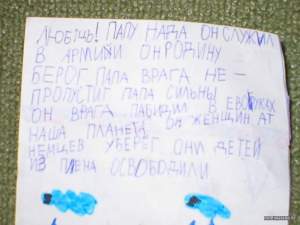 ЛЮБИЧЬ! ПАПУ НАДА ОН СЛУЖИЛ
В АРМИИИ ОН РОДИНУ
БЕРОГ ПАПА ВРАГА НЕ —
ПРОПУСТИГ ПАПА СИЛЬНЫ
ОН ВРАГА ПАБИДИЛ В
НАША ПЛАНЕТА ОН ЖЕНЩИН АТ
НЕМЦЕВ УБЕРЕГ ОНИ ДЕТЕЙ
ИЗ ПЛЕНА ОСВОБОДИЛИ